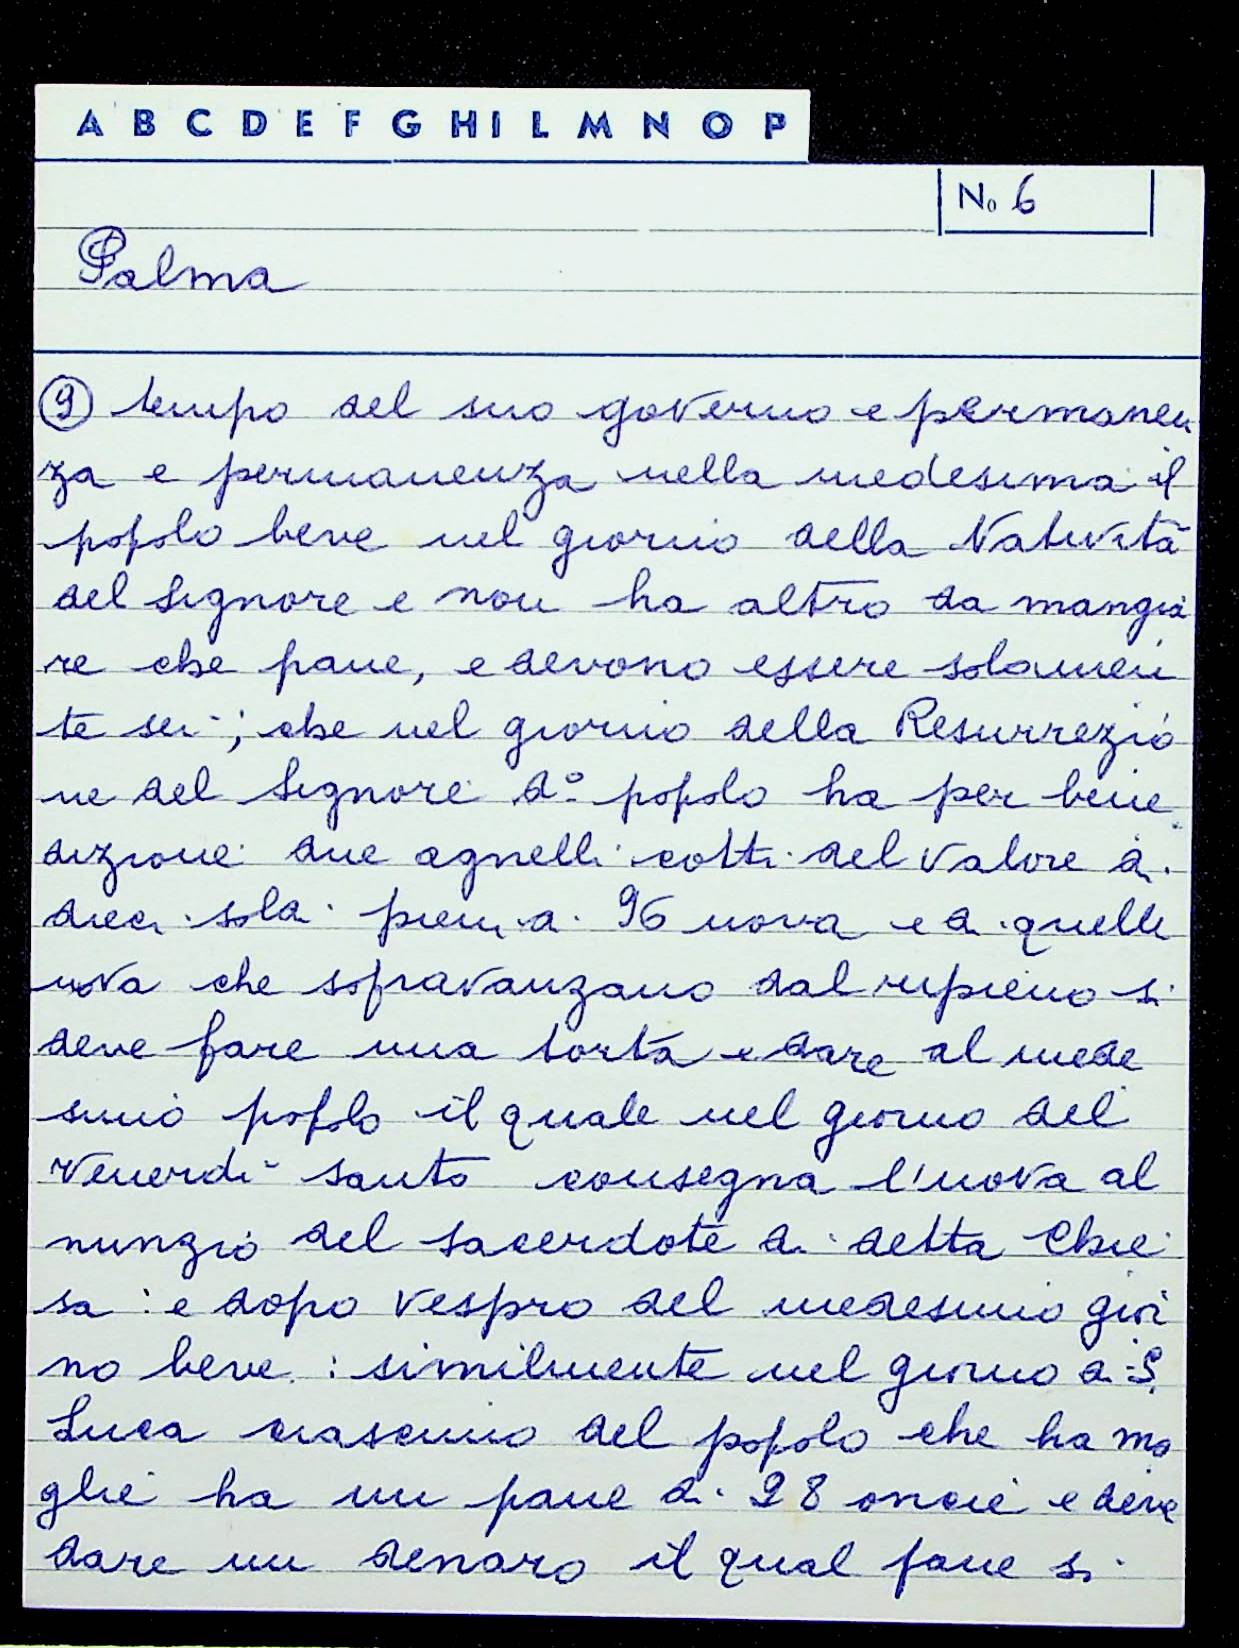 A B C D E F G H I L M N O P
No 6
Palma
9 tempo del suo governo e permanen
za e permanenza nella medesima il
popolo beve nel giorno della Natività
del Signore e non ha altro da mangia
re che pane, e devono essere solamen
te sei; che nel giorno della Resurrezio
ne del Signore d.º popolo ha per bene
dizione due agnelli cotti del valore di
dieci soldi pieni di 96 uova e di quelle
uova che sopravanzano dal ripieno si
deve fare una torta e dare al mede
simo popolo il quale nel giorno del
Venerdì santo consegna l'uova al
nunzio del sacerdote di detta Chie
sa: e dopo vespro del medesimo gior
no beve: similmente nel giorno di S.
Luca ciascuno del popolo che ha mo
glie ha un pane di 28 oncie e deve
dare un denaro il qual pane si